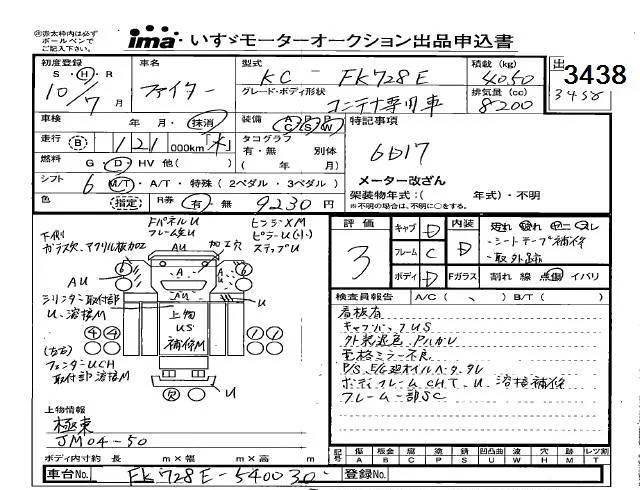 ㊟赤太枠内は必ず
ボールペンで
ご記入下さい。
ima いすゞモーターオークション出品申込書
初度登録 車名 型式 積載 (kg) 出
S・H・R ファイター KC - FK728E 4050 3438
10/7 月 グレード・ボディ形状 排気量 (cc) 3438
コンテナ専用車 8200
車検 年 月・抹消 装備 AC PS PW 特記事項
走行 B 121 000km タコグラフ 6D17
有・無 別体
燃料 G・D・HV 他( ) ( 年 月) メーター改ざん
シフト 6 M/T・A/T・特殊(2ペダル・3ペダル) 架装物年式:( 年式)・不明
※不明の場合は、不明に○をする。
色 (指定) R券 有・無 9230 円
下側
ガラス欠、アクリル板加工
FパネルU
フレーム先U
ピラーXM
ピラーU(小)
ステップU
加工穴
AU
シリンダー取付部
U、溶接M
AU
U
上物
US
補修M
(左右)
フェンダーUCH
取付部溶接M
U
欠
上物情報
極東
JM04-50
ボディ内寸約 長 m×幅 m×高 m
評価 3
キャブ D
フレーム C
ボディ D
内装 D
Fガラス 割れ 線 点傷 イバリ
・シートテープ補修
・取外跡
検査員報告 A/C( 、 ) B/T( )
看板有
キャブバックUS
外装退色、PハガU
左格ミラー不良
P/S、E/G廻オイルベタ、タレ
ボディフレームCHT、U、溶接補修
フレーム一部SC
記号 傷 板金 腐 塗 錆 凹凸曲 波 穴 跡 レツ割
A B C P S U W H M T
車台No. FK728E-540030
登録No.